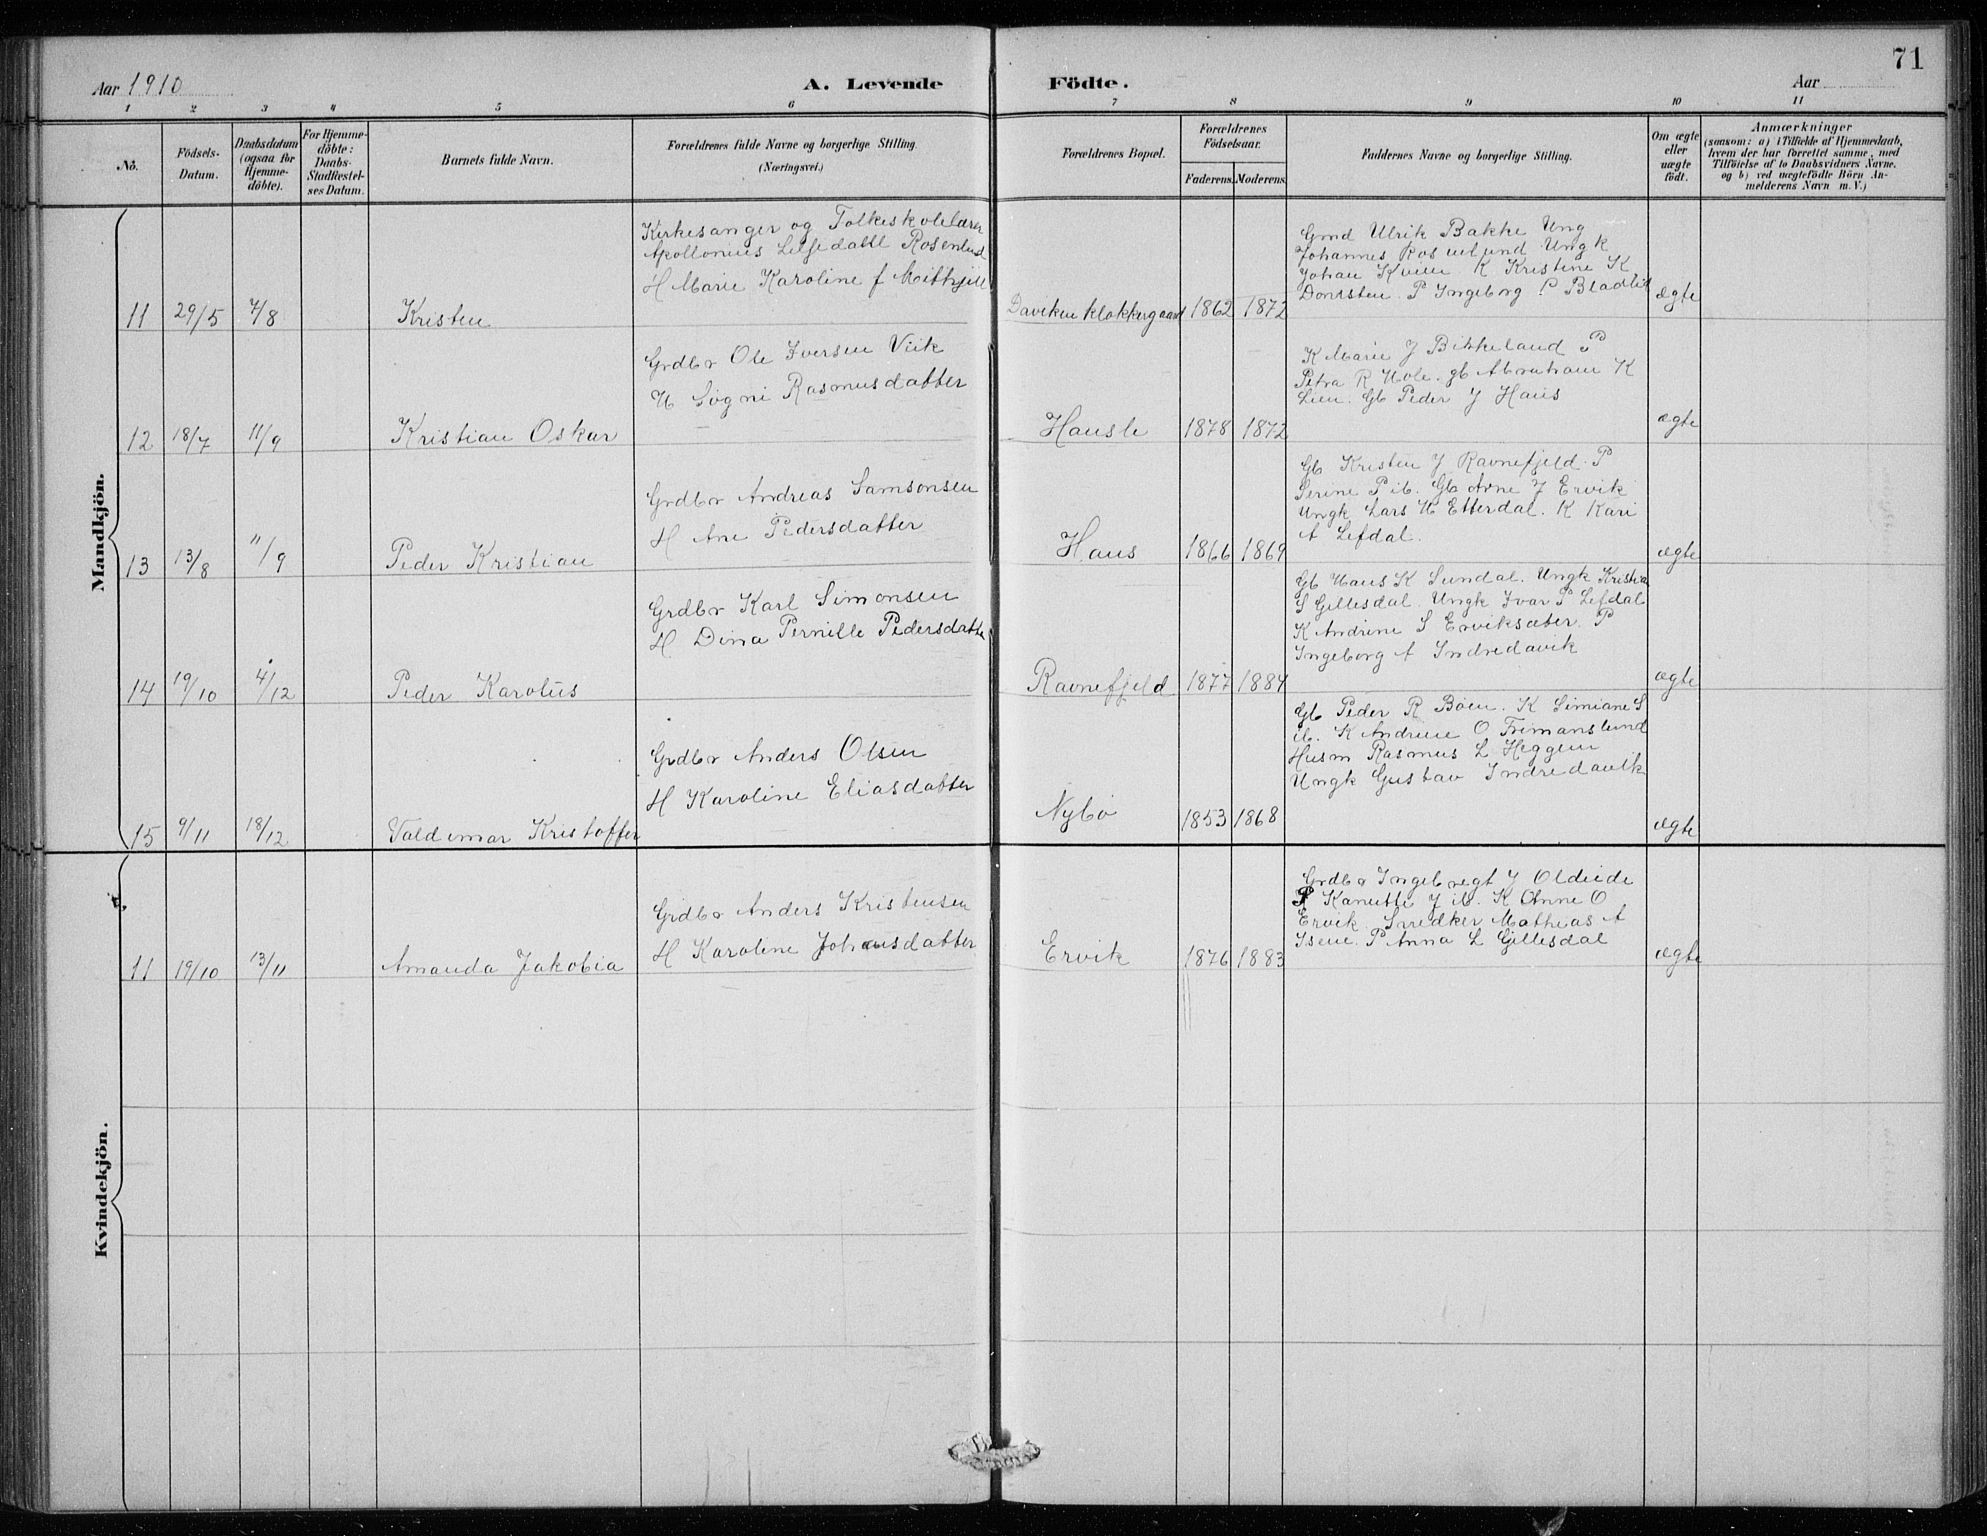 71
Aar 1910
A. Levende Födte.
Aar
1 2 3 4 5 6 7 8 9 10 11
No.
Födsels-
Datum.
Daabsdatum
(ogsaa for
Hjemme-
döbte).
For Hjemme-
döbte:
Daabs-
Stadfæstel-
ses Datum.
Barnets fulde Navn.
Forældrenes fulde Navne og borgerlige Stilling.
(Næringsvei.)
Forældrenes Bopæl.
Forældrenes
Födselsaar.
Faderens. Moderens.
Faddernes Navne og borgerlige Stilling.
Om ægte
eller
uægte
født.
Anmærkninger
(saasom: a) i Tilfælde af Hjemmedaab,
hvem der har forrettet samme, med
Tilföielse af to Daabsvidners Navne.
og b) ved uægtefödte Börn An-
melderens Navn m. V.)
Mandkjön.
11 29/5 7/8 Kristen
Kirkesanger og Folkeskolelærer
Apollonius Rosenlund
H Marie Karoline f
Daviken klokkergaard 1862 1872
Gmd Ulrik Bakke Ung
Johannes Rosenlund Ungk
Johan K Kristine K
P Ingeborg
ægte
12 18/7 11/9 Kristian Oskar
Grdbr Ole Iversen Viik
H Sogni Rasmusdatter
Hausle 1878 1872
K Marie J Birkeland P
Petra R Hole. gb Abraham K
Lien. Gb Peder J Haus
ægte
13 13/8 11/9 Peder Kristian
Grdbr Andreas Samsonsen
H Ane Pedersdatter
Haus 1866 1869
Gb Kristen J Ravnefjeld. P
Serine P ib. Gb Arne J Ervik
Ungk Lars H Etterdal. K Kari
A Lefdal.
ægte
14 19/10 4/12 Peder Karolus
Grdbr Karl Simonsen
H Dina Pernille Pedersdatte
Ravnefjeld 1877 1884
Gb Hans K Sundal. Ungk Kristia
S Gillesdal. Ungk Ivar P Lefdal
K Andrine S Erviksæter. P
Ingeborg A Indredavik
ægte
15 9/11 18/12 Valdemar Kristoffer
Grdbr Anders Olsen
H Karoline Eliasdatter
Nybø 1853 1868
Gb Peder R Bøen. K Simiane S
ib. K Andrine O Frimanslund
Husm Rasmus L Heggen
Ungk Gustav Indredavik
ægte
Kvindekjön.
11 19/10 13/11 Amanda Jakobia
Grdbr Anders Kristensen
H Karoline Johansdatter
Ervik 1876 1883
Grdbr Ingebregt J Oldeide
P Kanutte J ib. K Anne O
Ervik. Snedker Mathias A
Isene. P Anna L Gillesdal
ægte